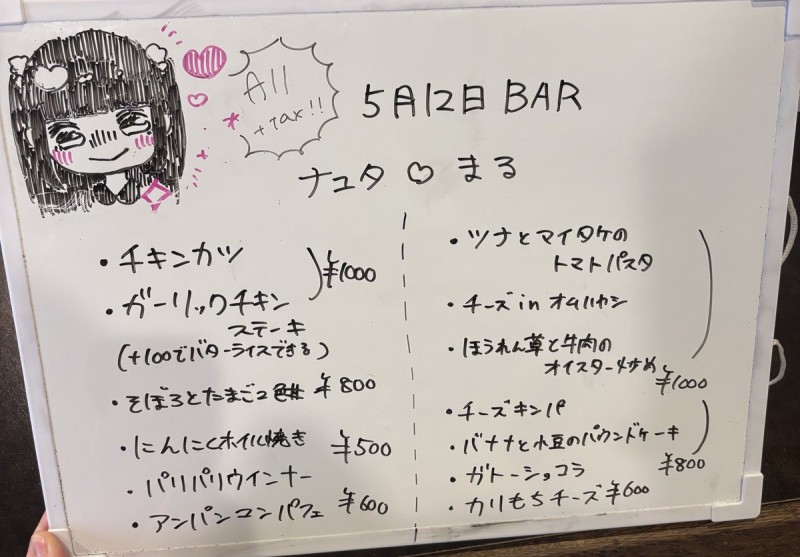 All
+ Tax!!
5月12日 BAR
ナユタ♡まる
・チキンカツ
・ガーリックチキン
ステーキ
¥1000
(+100でバターライスできる)
・そぼろとたまご2色丼 ¥800
・にんにくホイル焼き ¥500
・パリパリウインナー
・アンパンコンパフェ ¥600
・ツナとマイタケの
トマトパスタ
・チーズinオムハヤシ
・ほうれん草と牛肉の
オイスター炒め
¥1000
・チーズキンパ
・バナナと小豆のパウンドケーキ
¥800
・ガトーショコラ
・カリもちチーズ ¥600